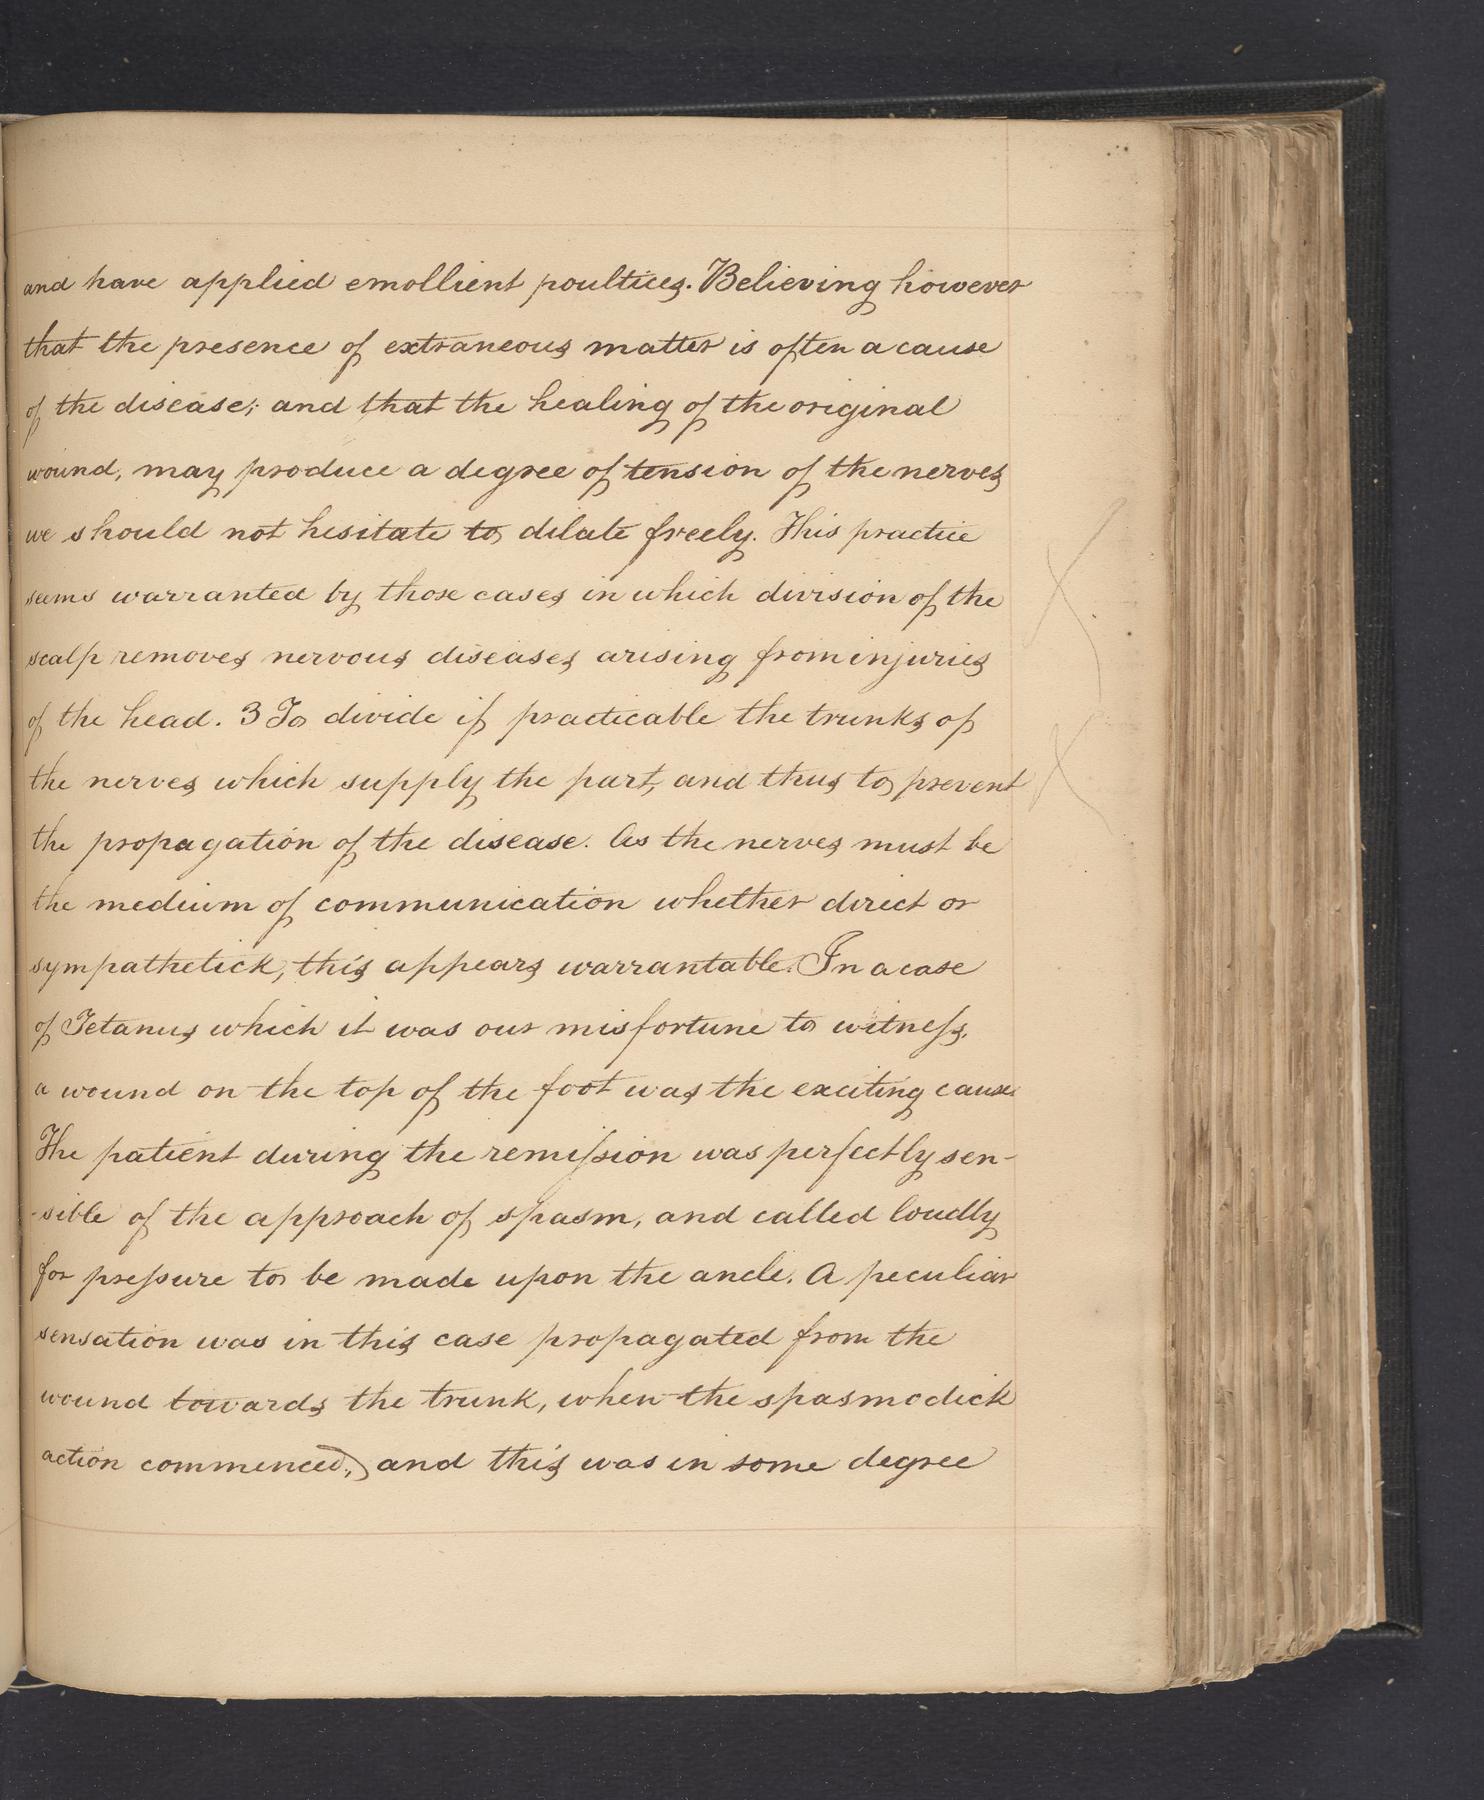 and have applied emollient poultices. Believing however
that the presence of extraneous matter is often a cause
of the disease; and that the healing of the original
wound, may produce a degree of tension of the nerves
we should not hesitate to dilate freely. This practice
seems warranted by those cases in which division of the
scalp removes nervous diseases arising from injuries
of the head. 3 To divide if practicable the trunks of
the nerves which supply the part, and thus to prevent
the propagation of the disease. As the nerves must be
the medium of communication whether direct or
sympathetick, this appears warrantable. In a case
of Tetanus which it was our misfortune to witness,
a wound on the top of the foot was the exciting cause.
The patient during the remission was perfectly sen-
-sible of the approach of spasm, and called loudly
for pressure to be made upon the ancle. A peculiar
sensation was in this case propagated from the
wound towards the trunk, when the spasmodick
action commenced;) and this was in some degree